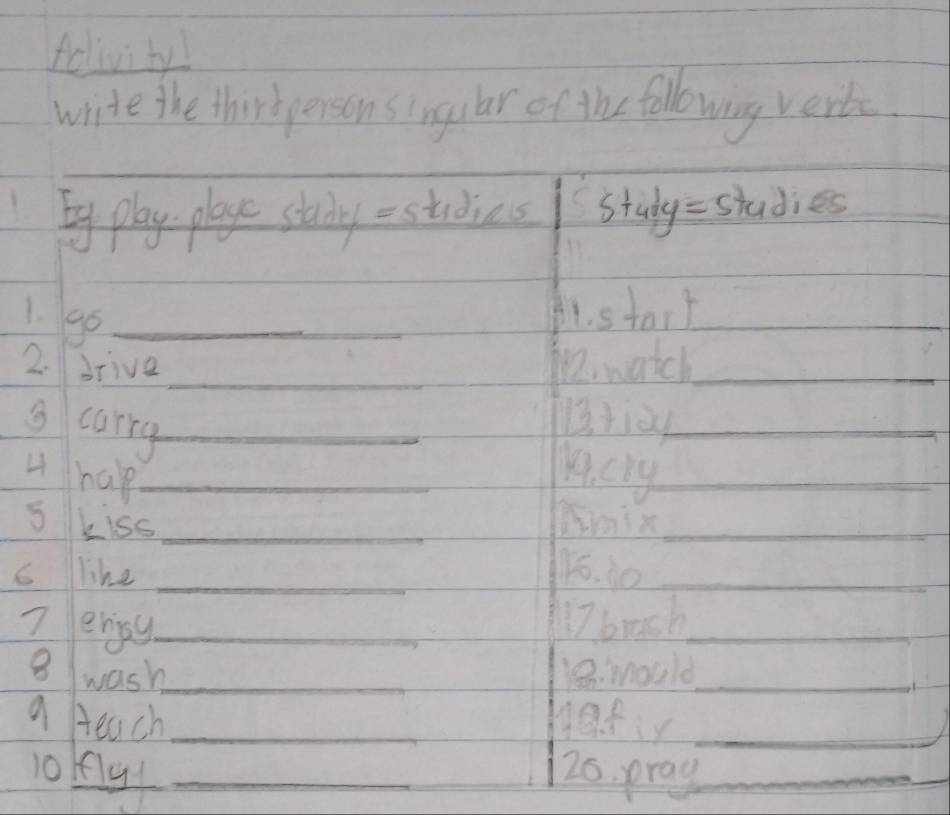 Activity 1
Write the third person singular of the following verbs.
Eg. play. plays study = studies
study = studies
1. go
2. drive
3 carry
4 help
5 kiss
6 like
7 enjoy
8 wash
9 teach
10 fly
11. start
12. watch
13. tidy
14. cry
15 mix
16. do
17 brush
18. mould
19. fix
20. pray